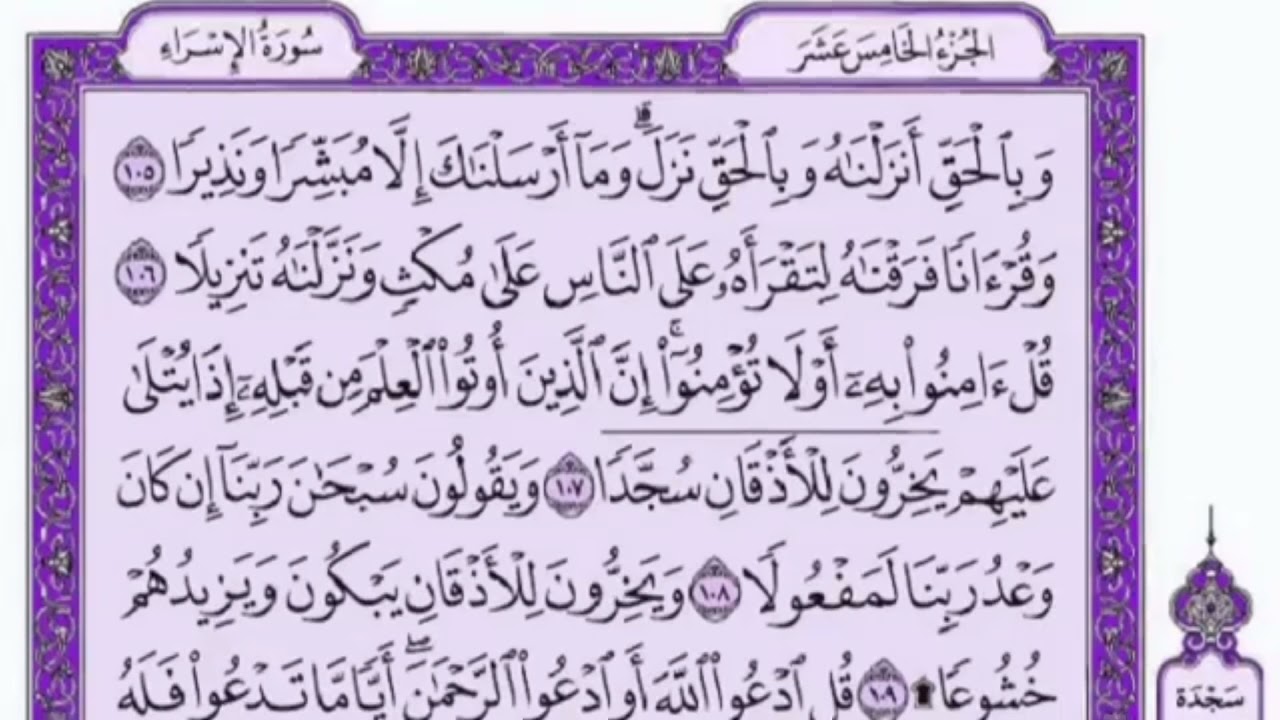 الجُزْءُ الخَامِسَ عَشَرَ
سُورَةُ الإِسْرَاءِ
وَبِٱلْحَقِّ أَنزَلْنَٰهُ وَبِٱلْحَقِّ نَزَلَ ۗ وَمَآ أَرْسَلْنَٰكَ إِلَّا مُبَشِّرًا وَنَذِيرًا ١٠٥
وَقُرْءَانًا فَرَقْنَٰهُ لِتَقْرَأَهُۥ عَلَى ٱلنَّاسِ عَلَىٰ مُكْثٍ وَنَزَّلْنَٰهُ تَنزِيلًا ١٠٦
قُلْ ءَامِنُوا۟ بِهِۦٓ أَوْ لَا تُؤْمِنُوٓا۟ ۚ إِنَّ ٱلَّذِينَ أُوتُوا۟ ٱلْعِلْمَ مِن قَبْلِهِۦٓ إِذَا يُتْلَىٰ
عَلَيْهِمْ يَخِرُّونَ لِلْأَذْقَانِ سُجَّدًا ١٠٧ وَيَقُولُونَ سُبْحَٰنَ رَبِّنَآ إِن كَانَ
وَعْدُ رَبِّنَا لَمَفْعُولًا ١٠٨ وَيَخِرُّونَ لِلْأَذْقَانِ يَبْكُونَ وَيَزِيدُهُمْ
خُشُوعًا ۩ ١٠٩ قُلِ ٱدْعُوا۟ ٱللَّهَ أَوِ ٱدْعُوا۟ ٱلرَّحْمَٰنَ ۖ أَيًّا مَّا تَدْعُوا۟ فَلَهُ
سَجْدَة